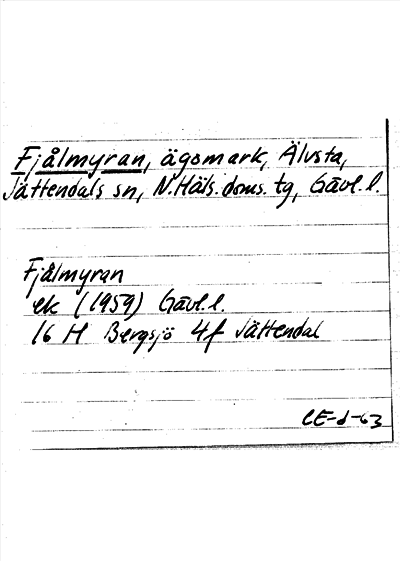 Fjålmyran, ägomark, Älvsta,
Jättendals sn, N.Häls.doms.tg, Gävl.l.
Fjålmyran
ek (1959) Gävl.l.
16 H Bergsjö 4f Jättendal
CE-d-63